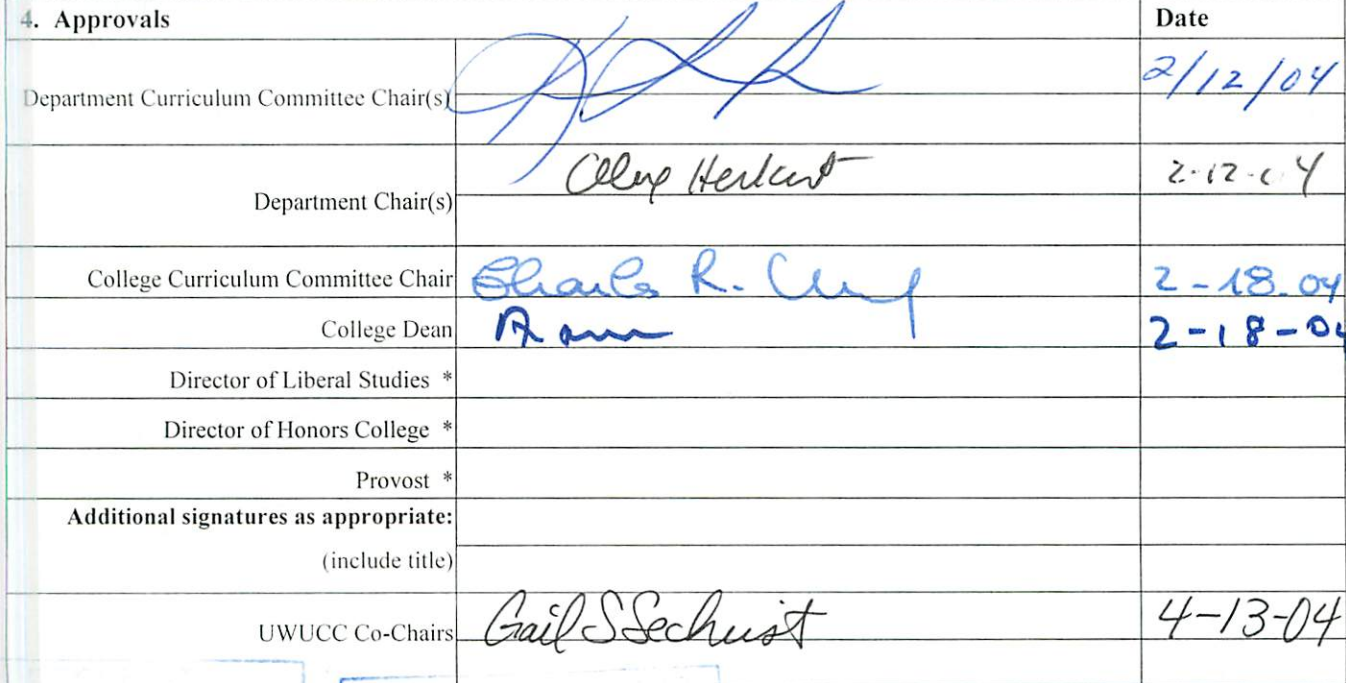 4. Approvals Date
Department Curriculum Committee Chair(s) 2/12/04
Department Chair(s) 2-12-04
College Curriculum Committee Chair Charles R. 2-18-04
College Dean 2-18-04
Director of Liberal Studies *
Director of Honors College *
Provost *
Additional signatures as appropriate:
(include title)
UWUCC Co-Chairs Gail S Sechrist 4-13-04